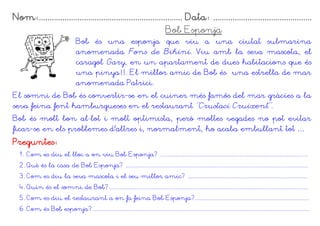 Nom:.................................................. Data: ......................................
Bob Esponja
Bob és una esponja que viu a una ciutat submarina
anomenada Fons de Bikini. Viu amb la seva mascota, el
caragol Gary, en un apartament de dues habitacions que és
una pinya!!. El millor amic de Bob és una estrella de mar
anomenada Patrici.
El somni de Bob és convertir-se en el cuiner més famós del mar gràcies a la
seva feina fent hamburgueses en el restaurant "Crustaci Cruixent".
Bob és molt bon al·lot i molt optimista, però moltes vegades no pot evitar
ficar-se en els problemes d'altres i, normalment, ho acaba embullant tot ...
Preguntes:
1. Com es diu el lloc a on viu Bob Esponja? ............................................................
2. Què és la casa de Bob Esponja? ............................................................
3. Com es diu la seva mascota i el seu millor amic? ............................................................
4. Quin és el somni de Bob?............................................................
5. Com es diu el restaurant a on fa feina Bob Esponja?............................................................
6. Com és Bob esponja?............................................................